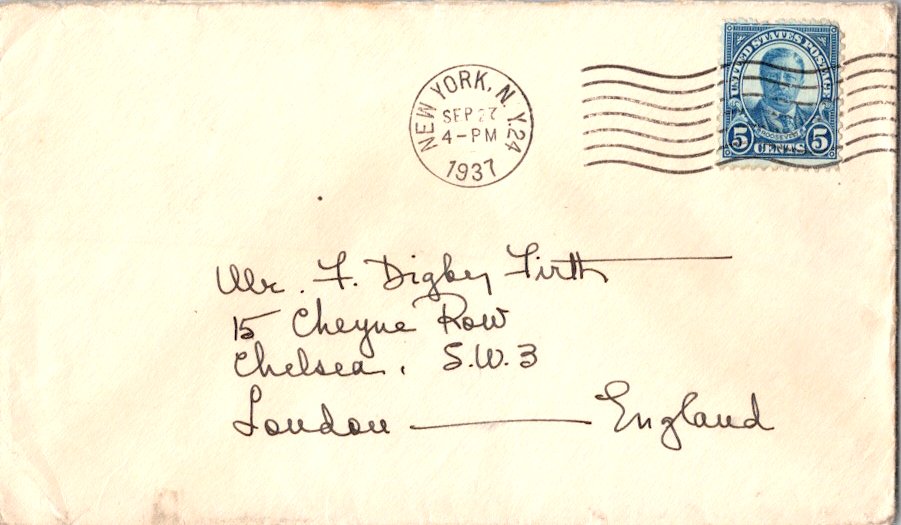 NEW YORK, N. Y. 24
SEP 27
4-PM
1937
UNITED STATES POSTAGE
ROOSEVELT
5 CENTS 5
Mr. F. Digby Firth
15 Cheyne Row
Chelsea, S.W.3
London — England